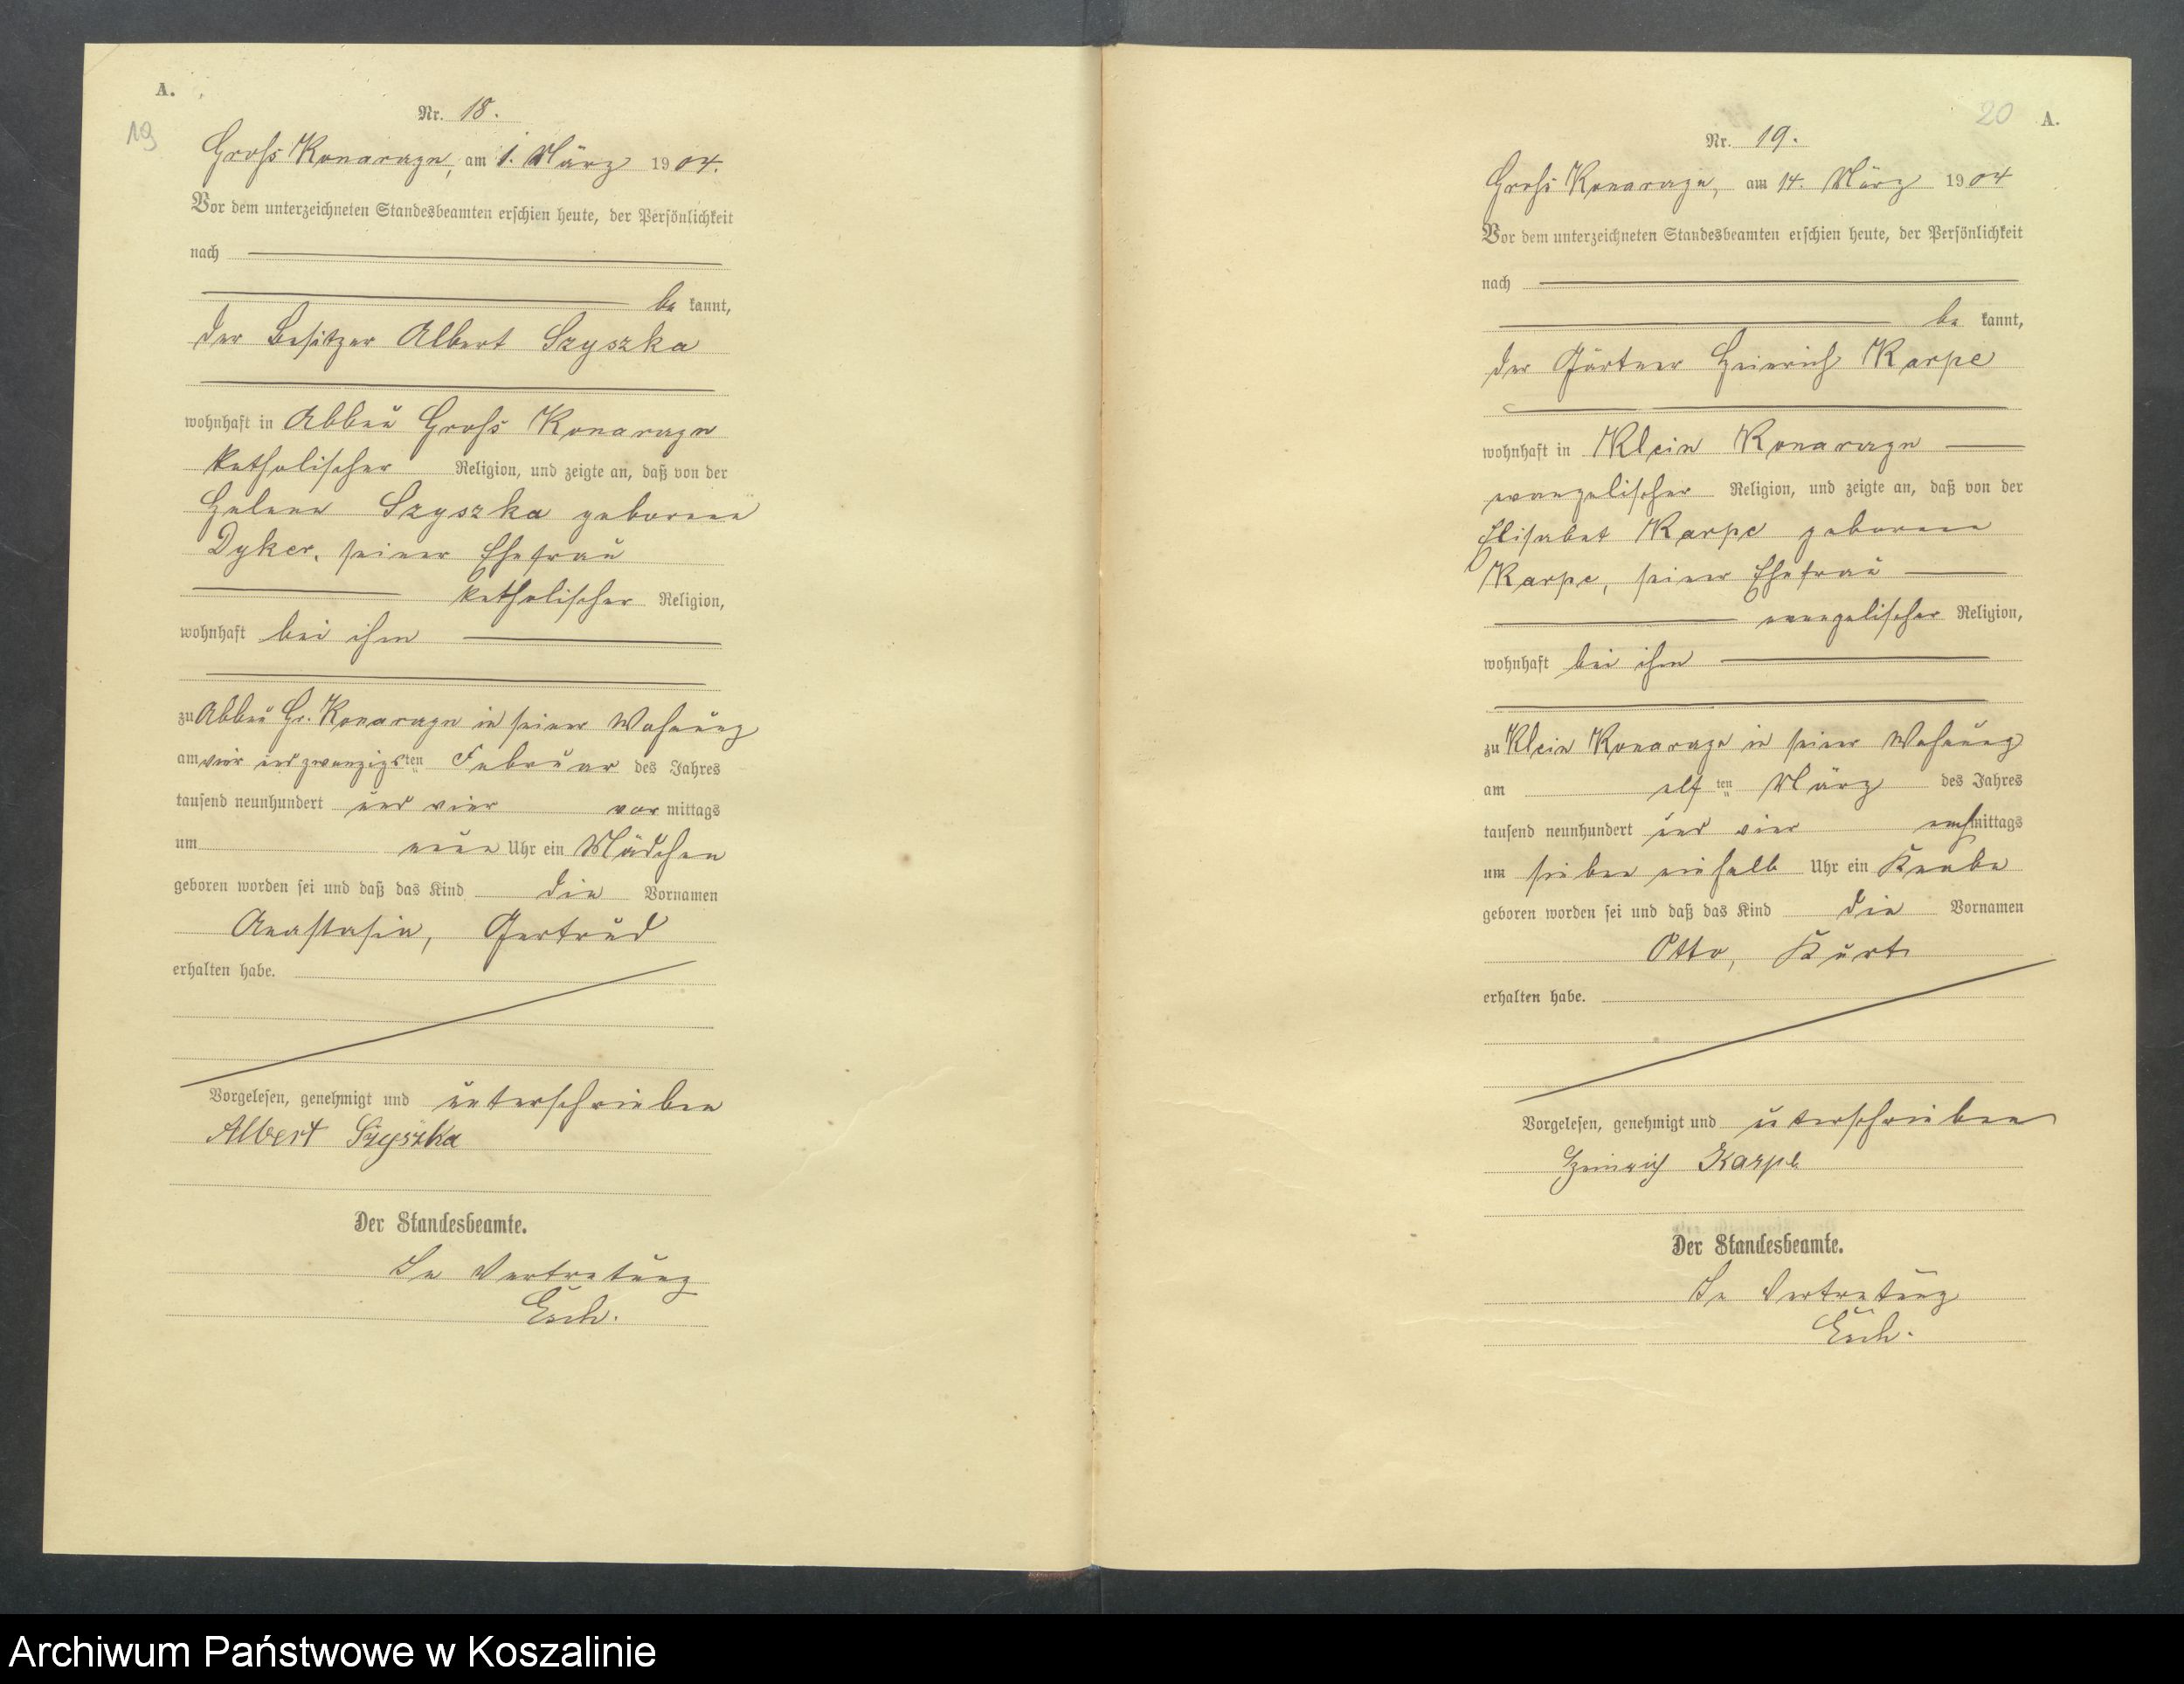 A.
19
Nr. 18.
Gross Konarczyn, am 1. März 1904.
Vor dem unterzeichneten Standesbeamten erschien heute, der Persönlichkeit
nach
be kannt,
der Besitzer Albert Szyszka
wohnhaft in Abbau Gross Konarczyn
katholischer Religion, und zeigte an, daß von der
Helene Szyszka geborene
Dyker, seiner Ehefrau
katholischer Religion,
wohnhaft bei ihm
zu Abbau Gr. Konarczyn in seiner Wohnung
am vier und zwanzigsten Februar des Jahres
tausend neunhundert und vier vor mittags
um neun Uhr ein Mädchen
geboren worden sei und daß das Kind die Vornamen
Anastasia, Gertrud
erhalten habe.
Vorgelesen, genehmigt und unterschrieben
Albert Szyszka
Der Standesbeamte.
In Vertretung
20 A.
Nr. 19.
Gross Konarczyn, am 14. März 1904
Vor dem unterzeichneten Standesbeamten erschien heute, der Persönlichkeit
nach
be kannt,
der Gärtner Heinrich Karpe
wohnhaft in Klein Konarczyn
evangelischer Religion, und zeigte an, daß von der
Elisabet Karpe geborene
Karpe, seiner Ehefrau
evangelischer Religion,
wohnhaft bei ihm
zu Klein Konarczyn in seiner Wohnung
am elf ten März des Jahres
tausend neunhundert und vier nachmittags
um sieben einhalb Uhr ein Knabe
geboren worden sei und daß das Kind die Vornamen
Otto, Kurt
erhalten habe.
Vorgelesen, genehmigt und unterschrieben
Heinrich Karpe
Der Standesbeamte.
In Vertretung
Archiwum Państwowe w Koszalinie